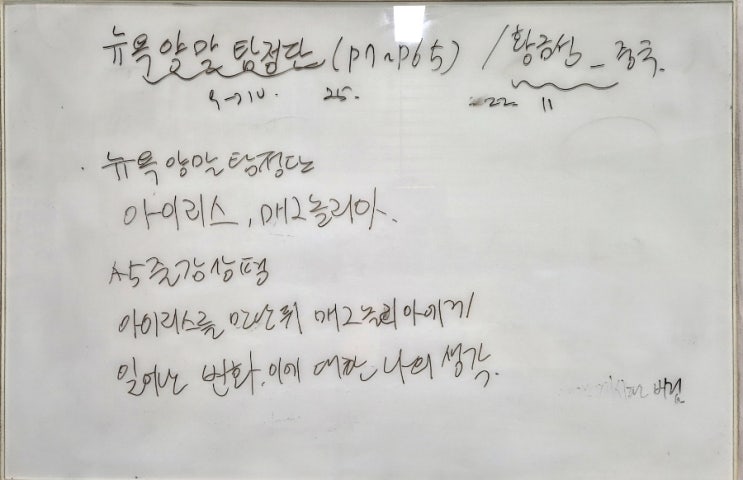 뉴욕 양말 탐정단 (p7~p65) / 황금성 - 중국.
25. 22 11
뉴욕 양말 탐정단
아이리스, 매그놀리아.
A5 줄 감상평
아이리스를 만난 뒤 매그놀리아에게
일어난 변화, 이에 대한 나의 생각.